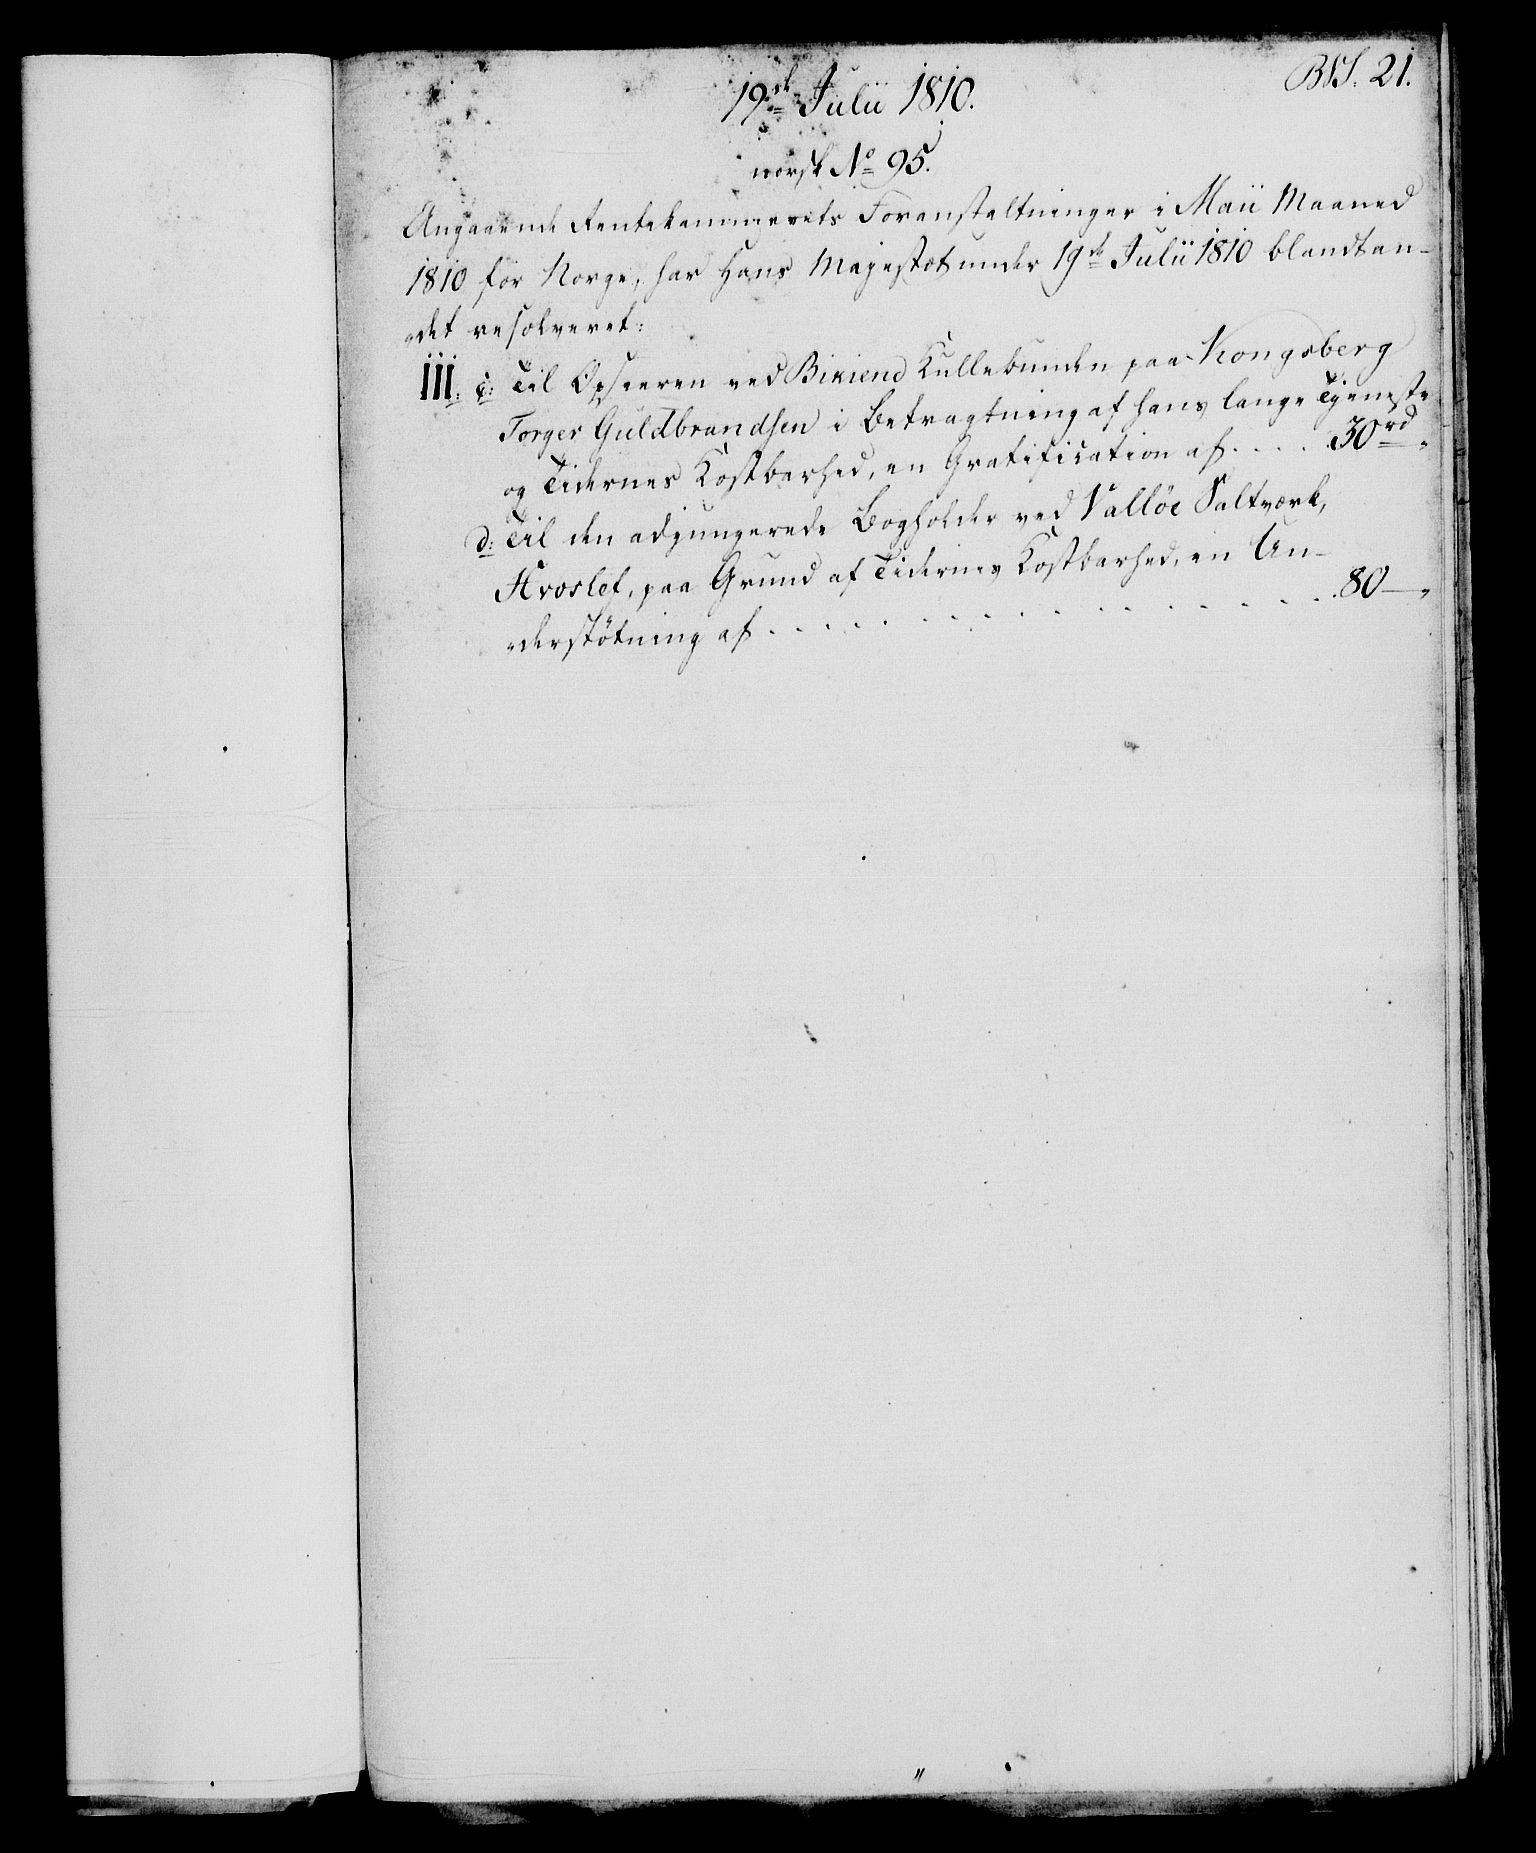 BVS. 21.
19de Julii 1810.
norsk No 95.
Angaaende Rentekammerets Foranstaltninger i Maii Maaned
1810 for Norge, har Hans Majestæt under 19de Julii 1810 blandt an-
det resolveret:
III. c: Til Opseeren ved Kullebunden paa Kongsberg
Torger Guldbrandsen i Betragtning af hans lange Tjeneste
og Tidernes Kostbarhed, en Gratification af .... 30rd "
d: Til den adjungerede Bogholder ved Valløe Saltværk,
Hroslef, paa Grund af Tidernes Kostbarhed, en Un-
derstøtning af . . . . . . . . . . . . . 80 — "